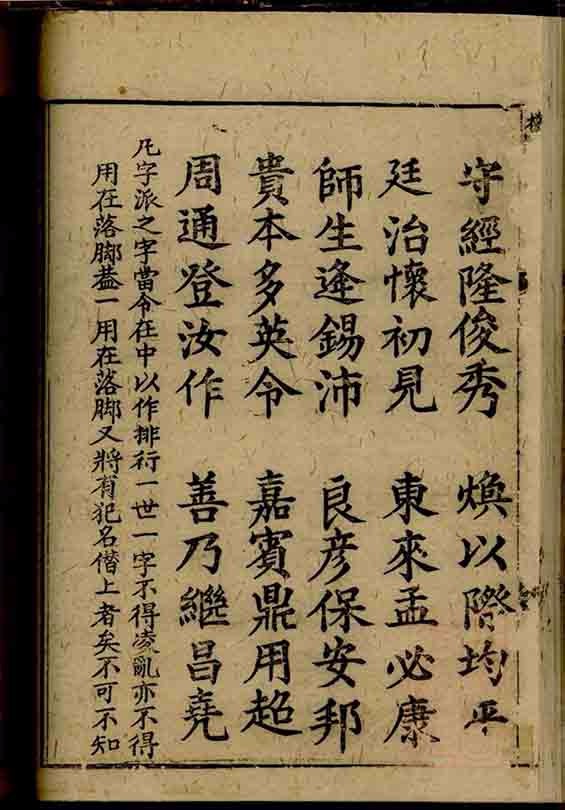 守經隆俊秀 煥以際均平
廷治懷初見 東來孟必康
師生逢錫沛 良彦保安邦
貴本多英令 嘉賓鼎用超
周通登汝作 善乃繼昌堯
凡字派之字當令在中以作排行一世一字不得凌亂亦不得
用在落脚葢一用在落脚又將有犯名僭上者矣不可不知